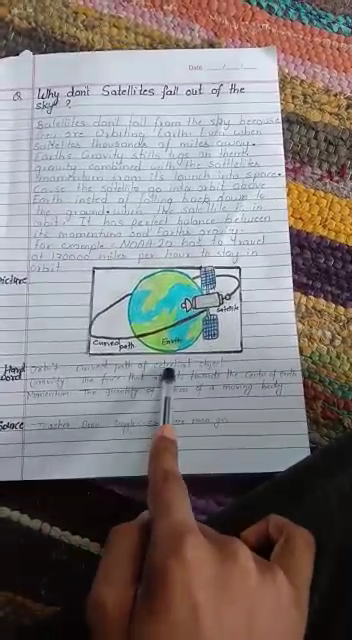 Date
Q. Why don't Satellites fall out of the
sky?
Satellites don't fall from the sky because
they are orbiting Earth. Even when
satellites thousands of miles away.
Earth's Gravity stills tugs on them
gravity combined with the satellites
momentum from its launch into space.
Cause the satellite go into orbit above
Earth insted of falling back down to
the ground. when the satellite is in
orbit. It has perfect balance between
its momentum and Earth's gravity.
for example NOAA-20 has to travel
at 170000 miles per hour to stay in
orbit
Picture
Curved path Earth Satellite
Hard Orbit Curved path of celestial object
word Gravity The force that towards the center of earth
Momentum The quantity of of a moving body
Source Teacher